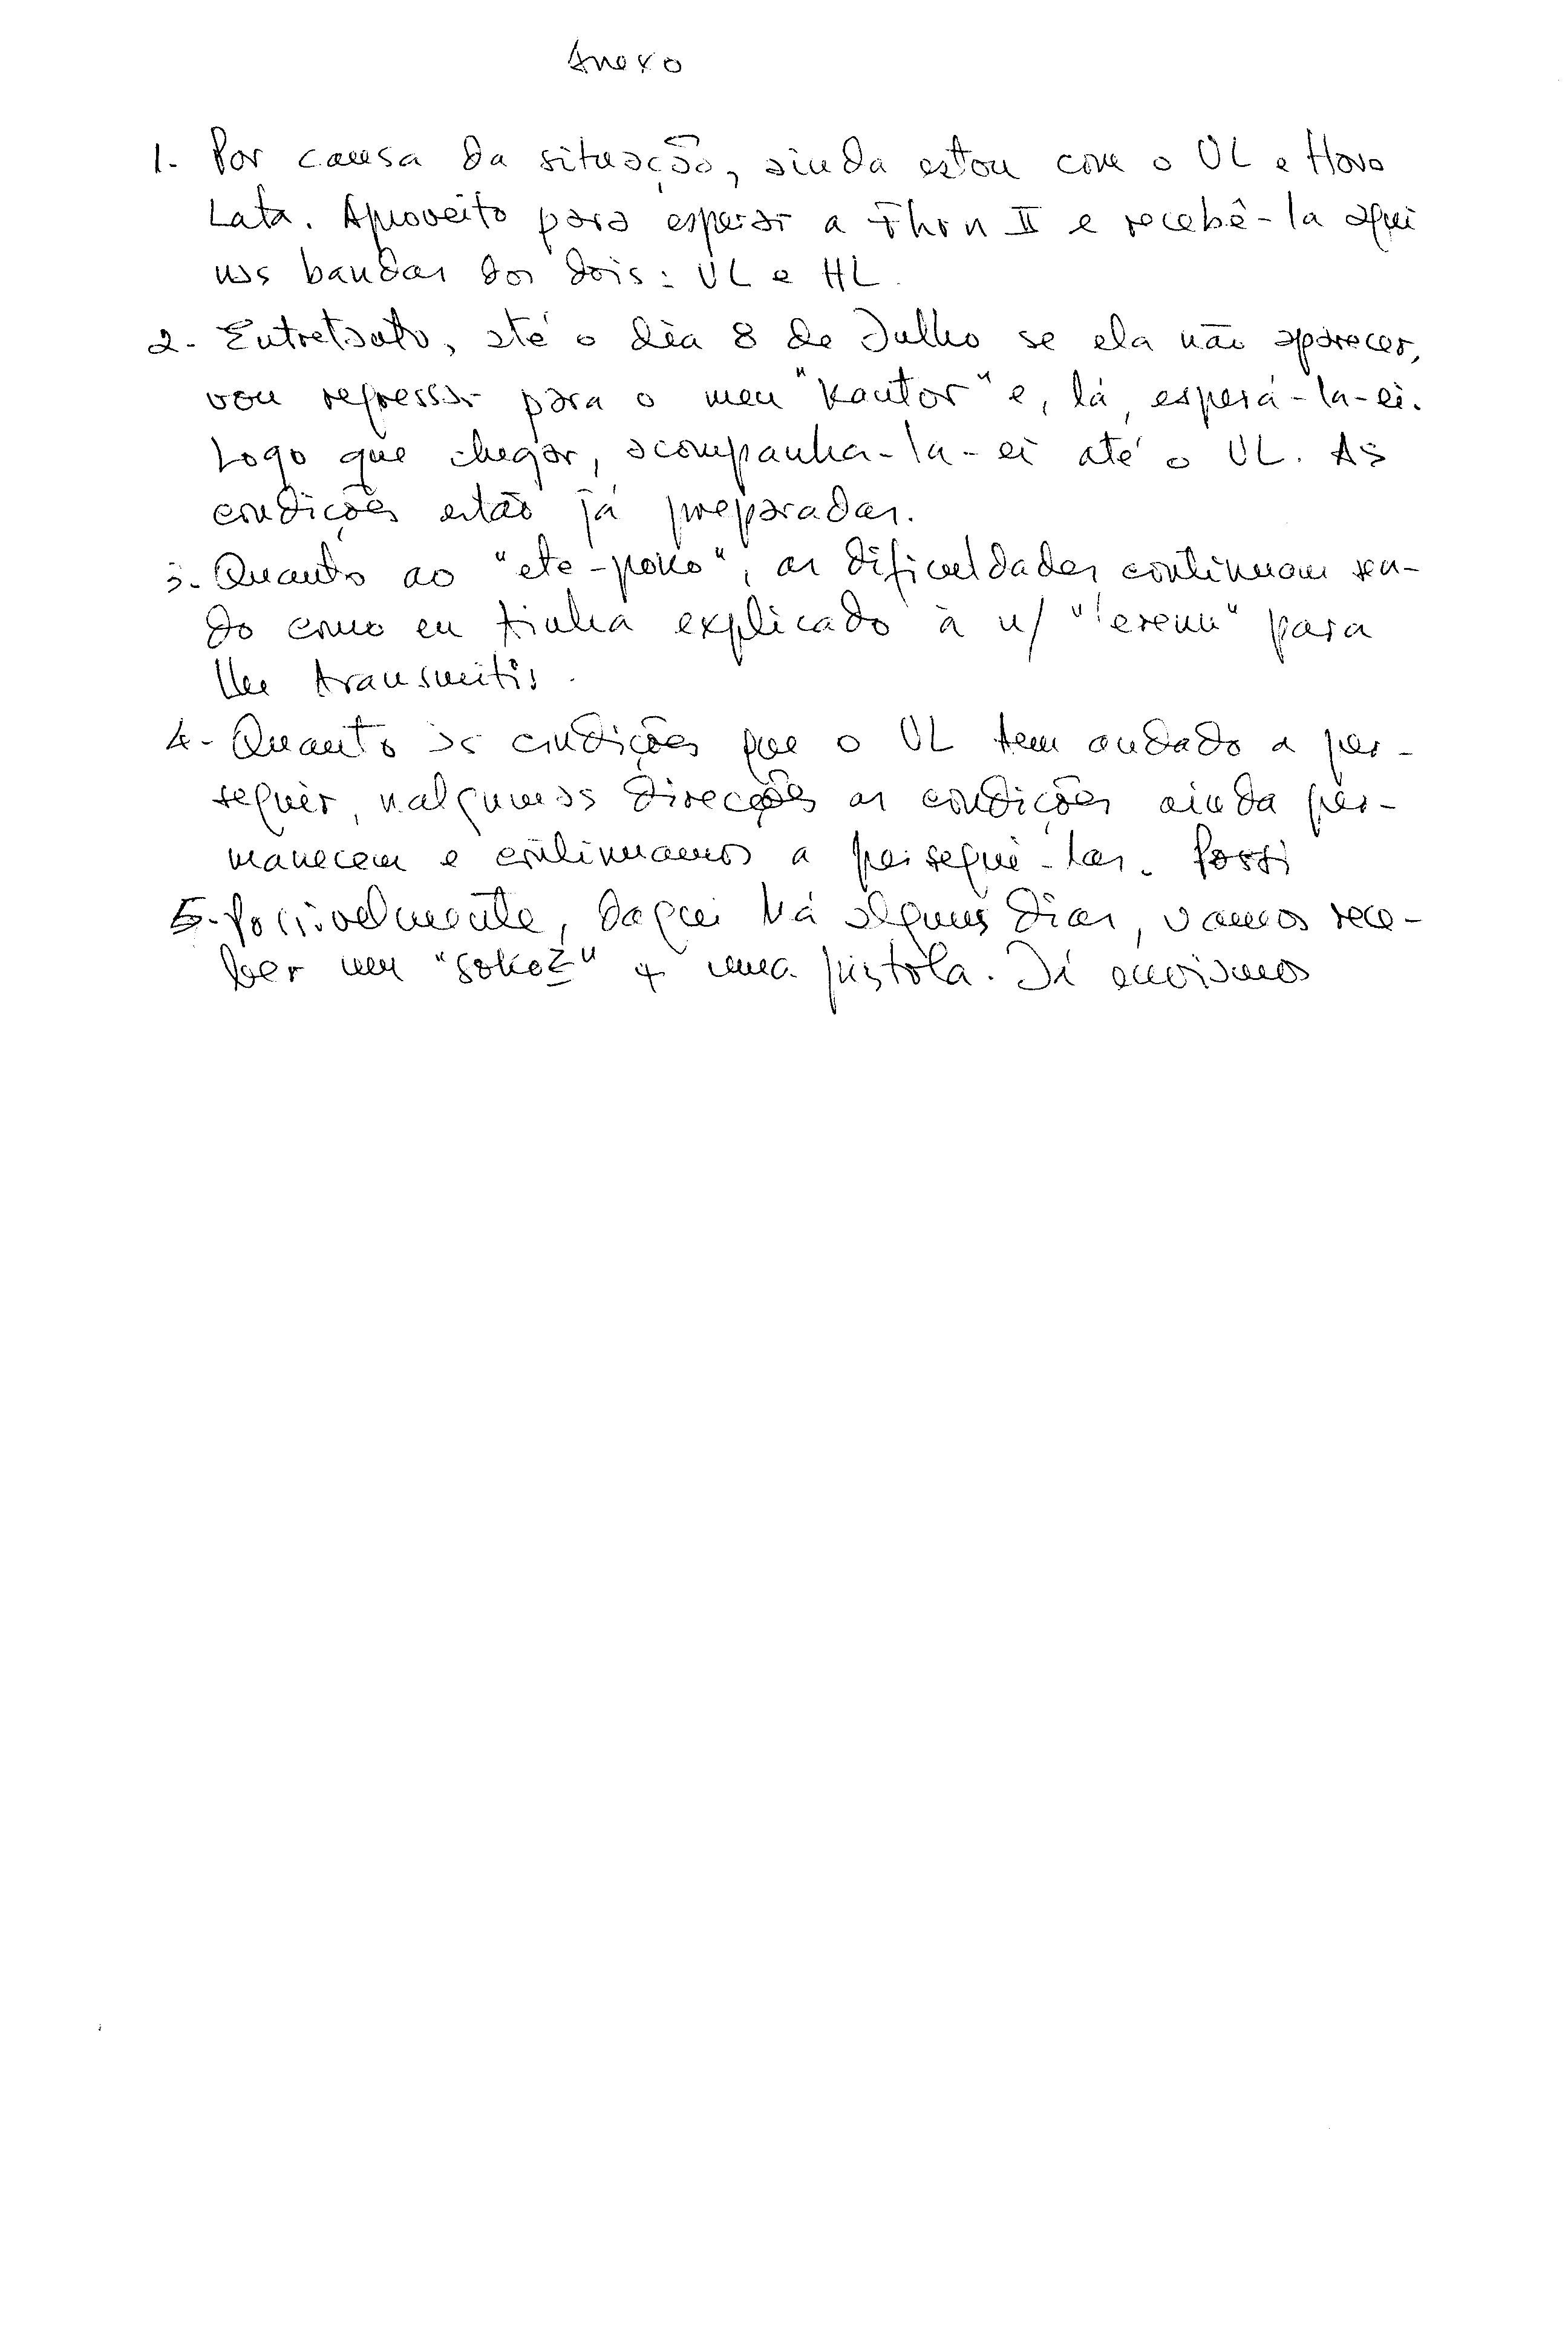 Anexo
1. Por causa da situação, ainda estou com o UL e Horo
Lata. Aproveito para esperar a Thrn II e recebê-la aqui
nas bandas dos dois: UL e HL.
2. Entretanto, até o dia 8 de Julho se ela não aparecer,
vou regressar para o meu "Kantor" e, lá, esperá-la-ei.
Logo que chegar, acompanha-la-ei até o UL. As
condições estão já preparadas.
3. Quanto ao "ete-poko", as dificuldades continuam sen-
do como eu tinha explicado à n/ para
lhe transmitir.
4. Quanto às condições que o UL tem andado a per-
seguir, nalgumas direcções as condições ainda per-
manecem e continuamos a persegui-las. Possi
5. Possivelmente, daqui há alguns dias, vamos rece-
ber um + uma pistola. Já enviamos